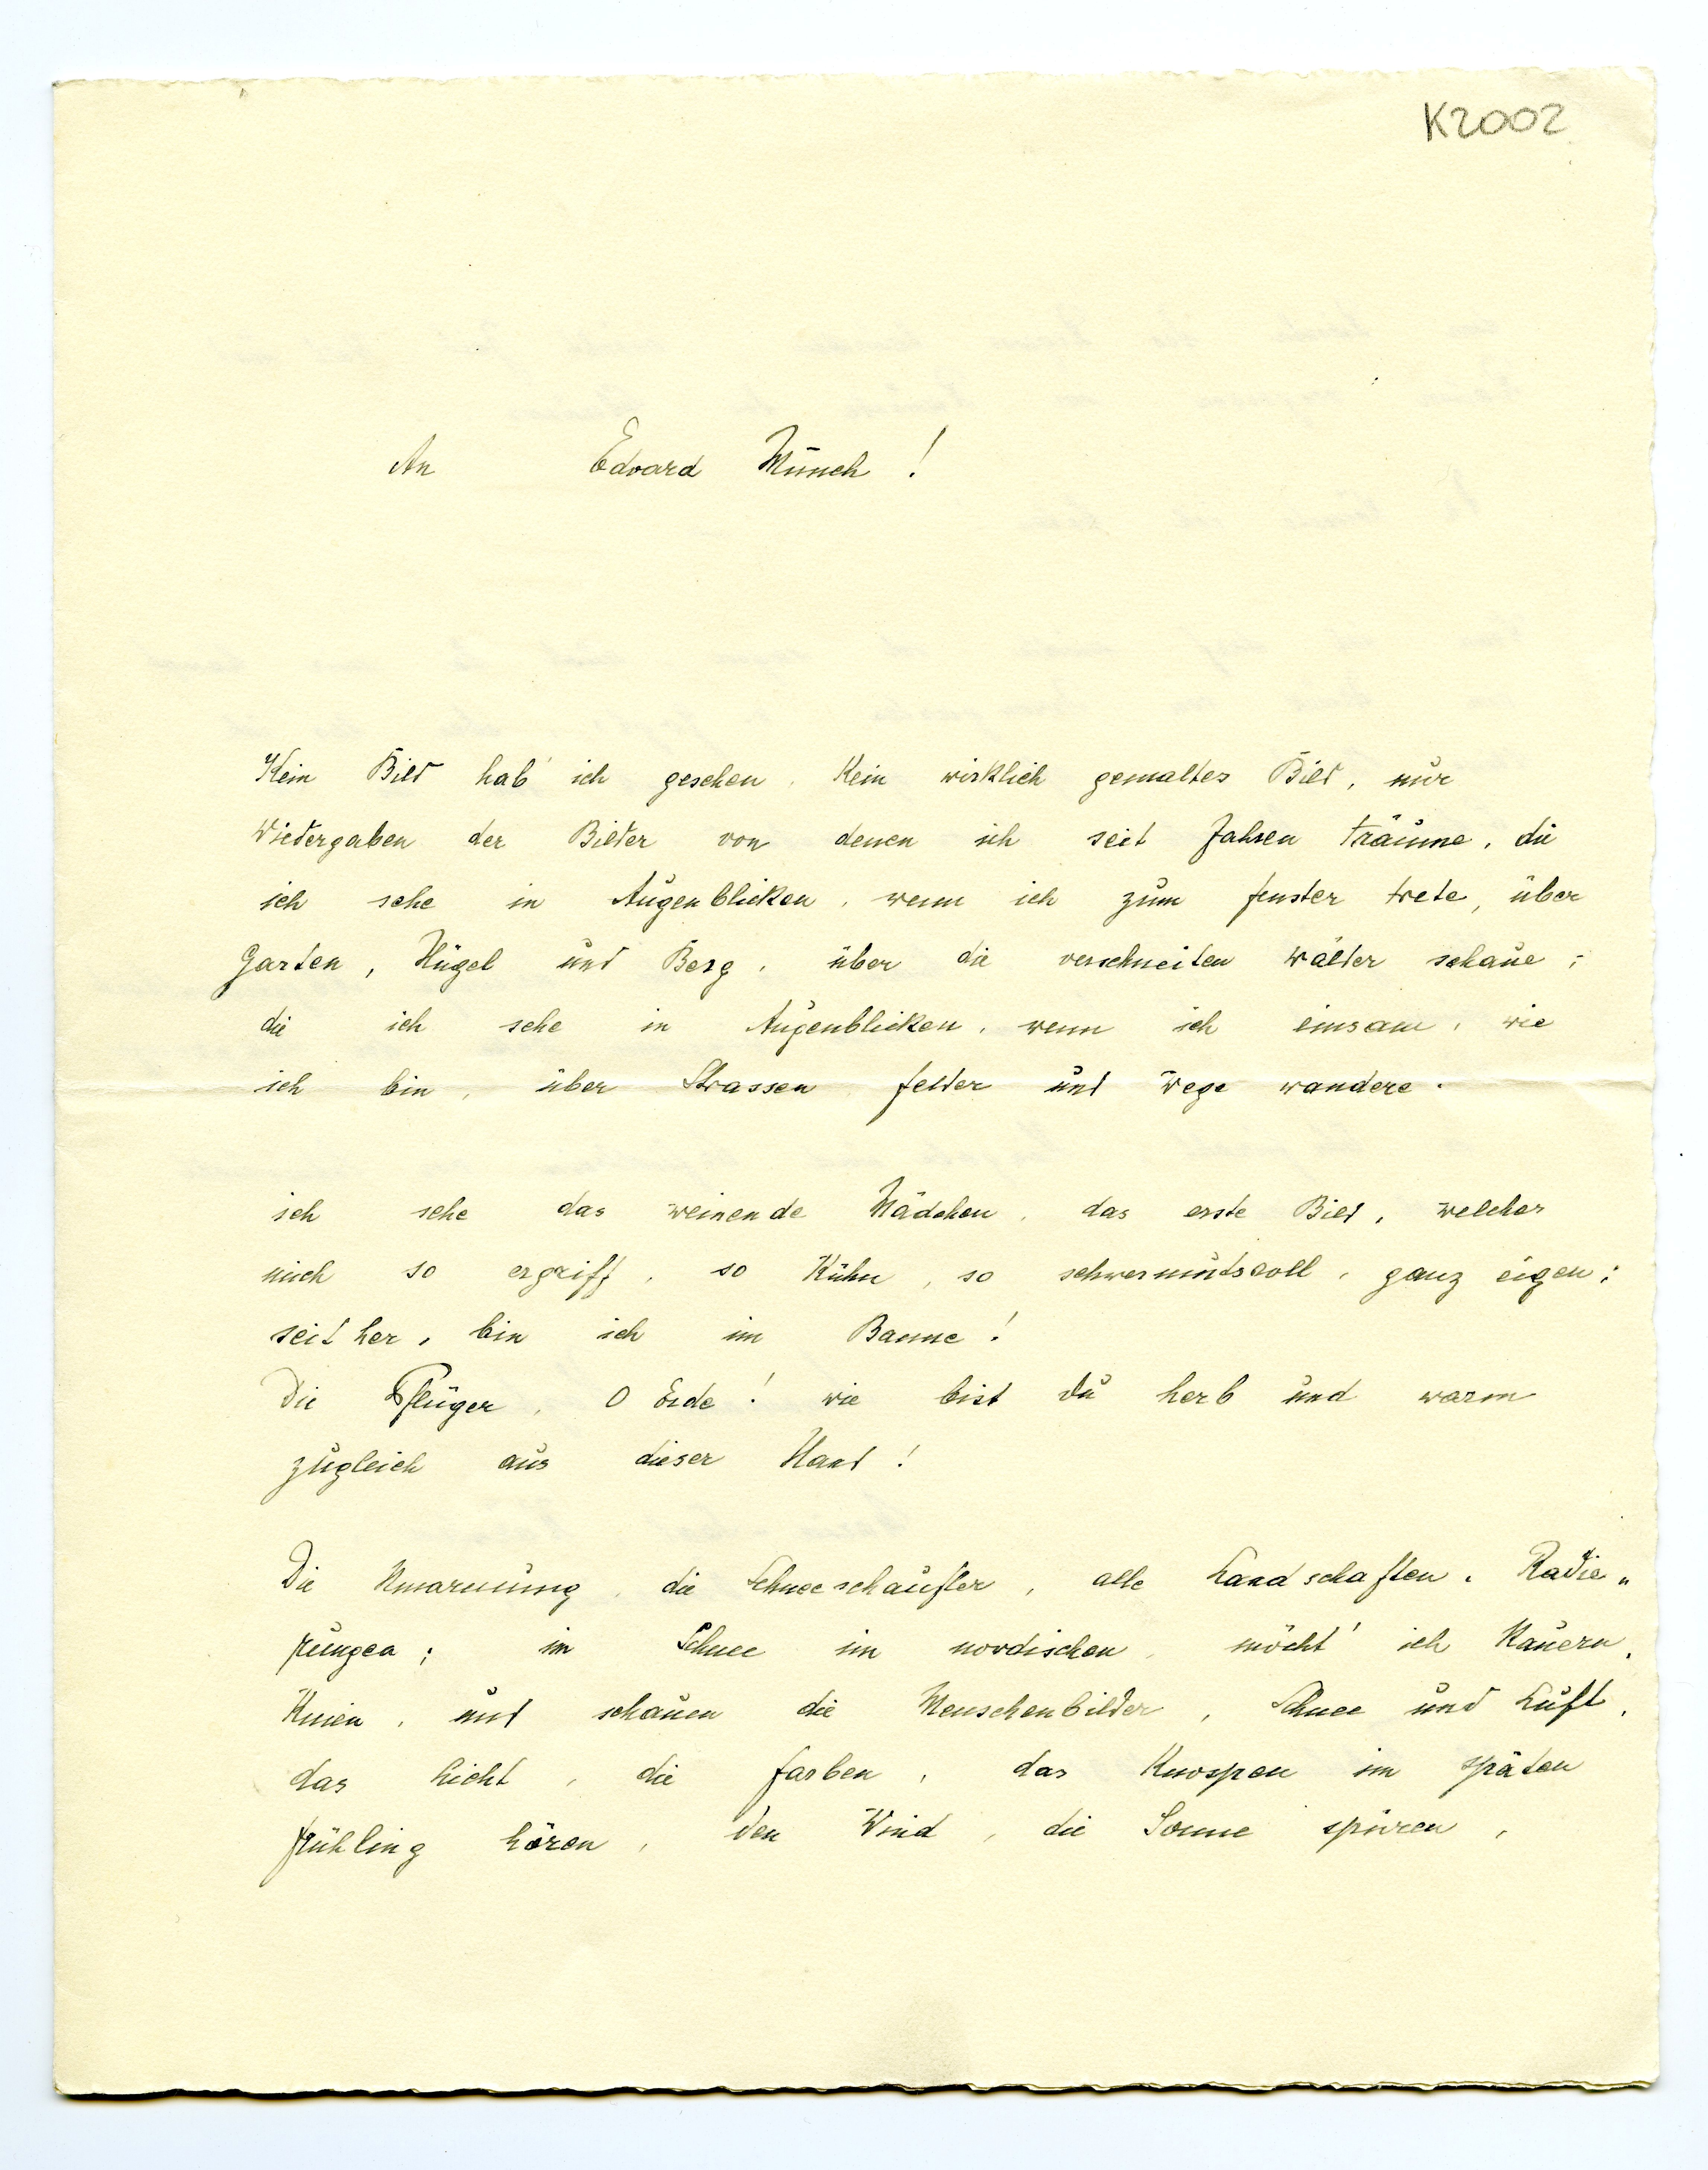 K2002
An Edvard Münch !
Kein Bild hab' ich gesehen, Kein wirklich gemaltes Bild, nur
Wiedergaben der Bilder von denen ich seit Jahren träume, die
ich sehe in Augenblicken, wenn ich zum fenster trete, über
Garten, Hügel und Berg, über die verschneiten Wälder schaue ;
die ich sehe in Augenblicken, wenn ich einsam, wie
ich bin, über Strassen felder und Wege wandere.
ich sehe das weinende Mädchen, das erste Bild, welches
mich so ergriff, so Kühn, so schwermutsvoll, ganz eigen ;
seither, bin ich im Banne !
Die Pflüger, O Erde ! wie bist du herb und warm
zugleich aus dieser Hand !
Die Umarmung, die Schneeschaufler, alle Landschaften, Radie„
rungen ; im Schnee im nordischen, möcht' ich Kauern,
Knien, und schauen die Menschenbilder, Schnee und Luft,
das Licht, die farben, das Knospen im späten
frühling hören, den Wind, die Sonne spüren,